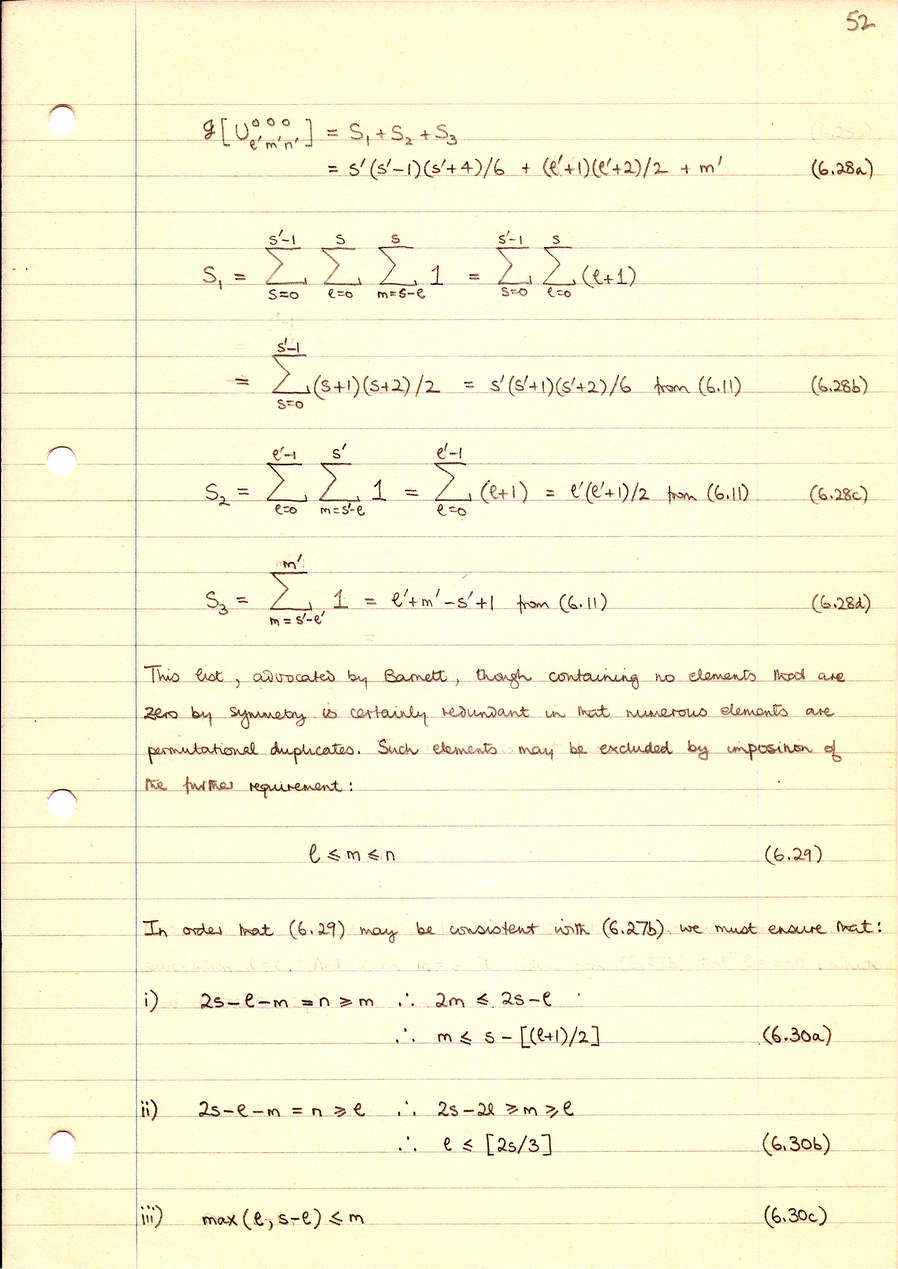 52
g[U⁰⁰⁰ₑ'ₘ'ₙ'] = S₁+S₂+S₃
= s'(s'-1)(s'+4)/6 + (ℓ'+1)(ℓ'+2)/2 + m' (6.28a)
S₁ = ∑_{s=0}^{s'-1} ∑_{ℓ=0}^{s} ∑_{m=s-ℓ}^{s} 1 = ∑_{s=0}^{s'-1} ∑_{ℓ=0}^{s} (ℓ+1)
= ∑_{s=0}^{s'-1} (s+1)(s+2)/2 = s'(s'+1)(s'+2)/6 from (6.11) (6.28b)
S₂ = ∑_{ℓ=0}^{ℓ'-1} ∑_{m=s'-ℓ}^{s'} 1 = ∑_{ℓ=0}^{ℓ'-1} (ℓ+1) = ℓ'(ℓ'+1)/2 from (6.11) (6.28c)
S₃ = ∑_{m=s'-ℓ'}^{m'} 1 = ℓ'+m'-s'+1 from (6.11) (6.28d)
This list, advocated by Barnett, though containing no elements that are
zero by symmetry is certainly redundant in that numerous elements are
permutational duplicates. Such elements may be excluded by imposition of
the further requirement:
ℓ ≤ m ≤ n (6.29)
In order that (6.29) may be consistent with (6.27b) we must ensure that:
i) 2s-ℓ-m = n ≥ m ∴ 2m ≤ 2s-ℓ
∴ m ≤ s - [(ℓ+1)/2] (6.30a)
ii) 2s-ℓ-m = n ≥ ℓ ∴ 2s-2ℓ ≥ m ≥ ℓ
∴ ℓ ≤ [2s/3] (6.30b)
iii) max(ℓ, s-ℓ) ≤ m (6.30c)